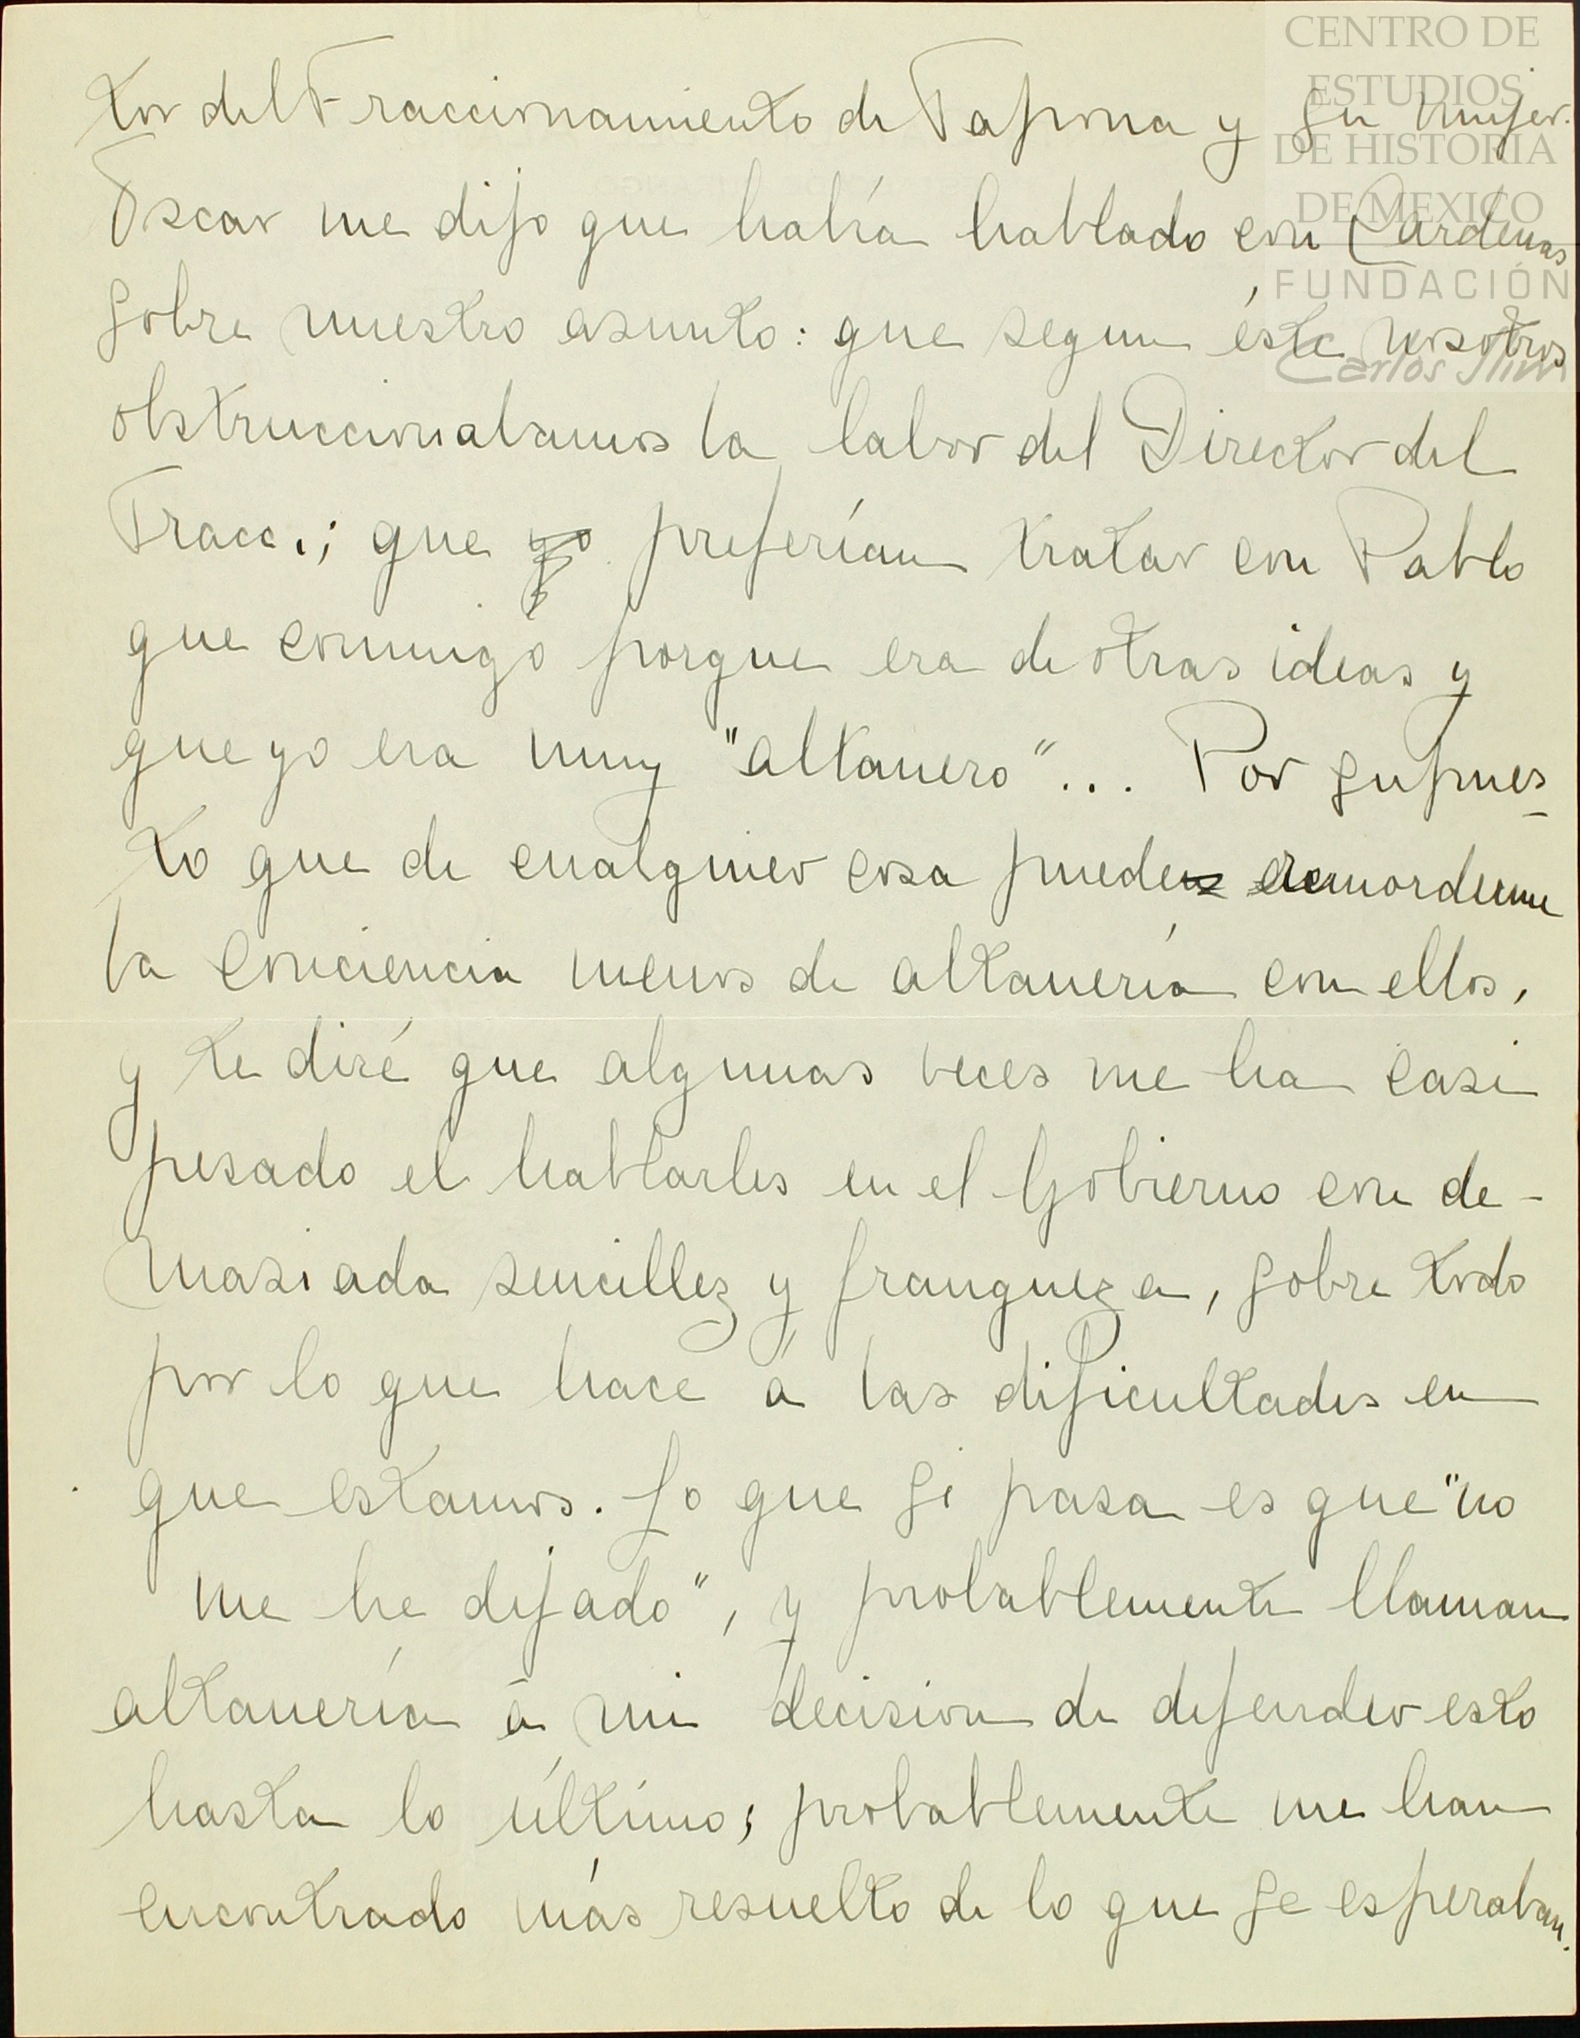 tor del Fraccionamiento de Tapona y su mujer.
Oscar me dijo que había hablado con Cárdenas
sobre nuestro asunto: que segun éste nosotros
obstruccionabamos la labor del Director del
Fracc.; que yo preferían tratar con Pablo
que conmigo porque era de otras ideas y
que yo era muy "altanero"... Por supues-
to que de cualquier cosa puede remorderme
la conciencia menos de altanería con ellos,
y te diré que algunas veces me ha casi
pesado el hablarles en el Gobierno con de-
masiada sencillez y franqueza, sobre todo
por lo que hace á las dificultades en
que estamos. Lo que si pasa es que "no
me he dejado", y probablemente llaman
altanería á mi decision de defender esto
hasta lo último; probablemente me han
encontrado más resuelto de lo que se esperaban.
CENTRO DE
ESTUDIOS
DE HISTORIA
DE MEXICO
FUNDACIÓN
Carlos Slim